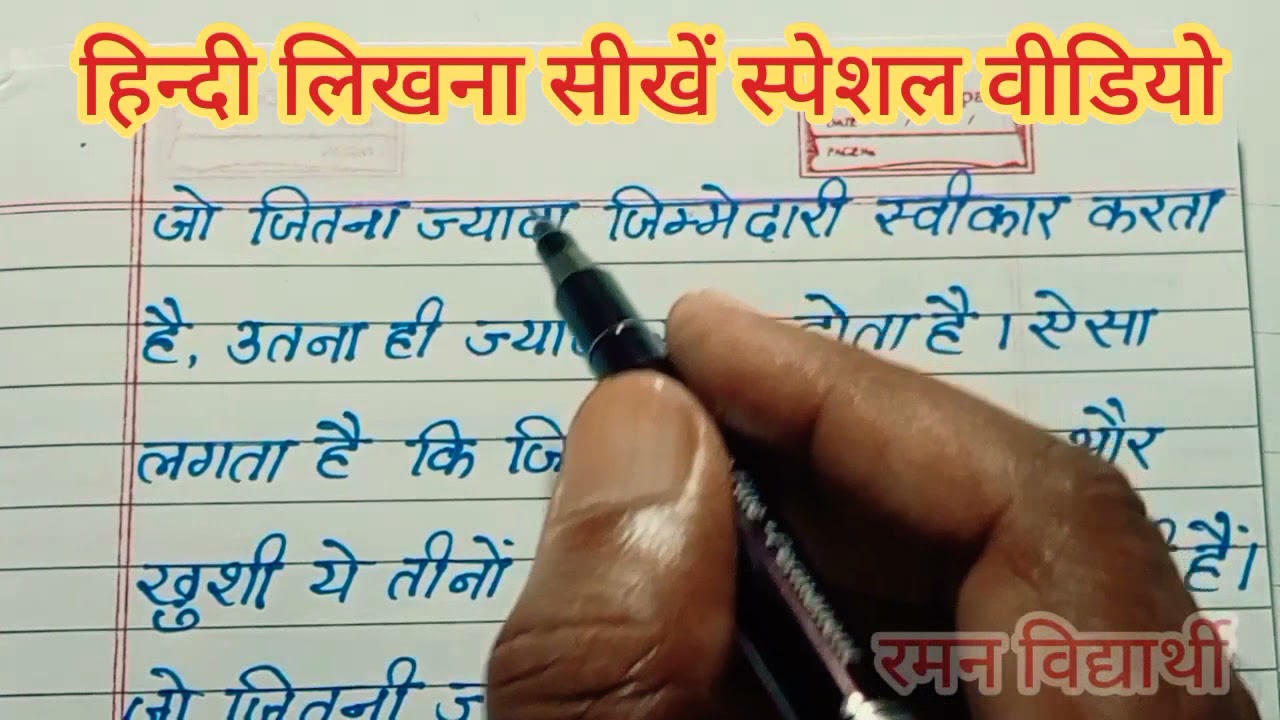 हिन्दी लिखना सीखें स्पेशल वीडियो
DATE / /
PAGE No
जो जितना ज्यादा जिम्मेदारी स्वीकार करता
है, उतना ही होता है । ऐसा
लगता है कि और
खुशी ये तीनों हैं।
जो जितनी
रमन विद्यार्थी